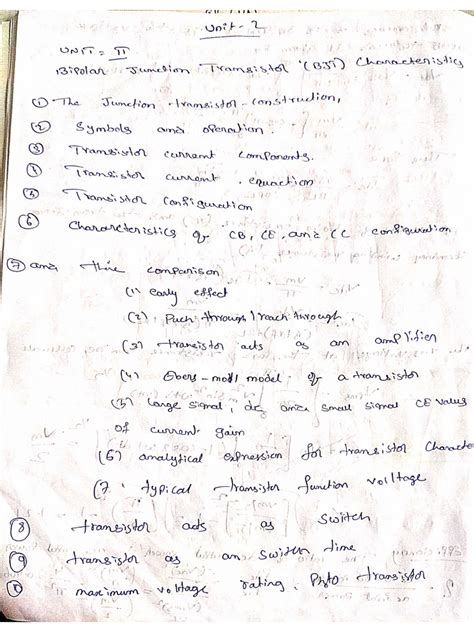 Unit - 2
UNIT = II
Bipolar Junction Transistor (BJT) Characteristics
① The Junction transistor - construction,
② Symbols and operation.
③ Transistor current components.
④ Transistor current equaction
⑤ Transistor Configuration
⑥ Characteristics of CB, CE, and CC configuration
⑦ and thire comparison
(1) early effect
(2) Puch through / reach through.
(3) transistor acts as an amplifier
(4) Ebers - moll model of a transistor
(5) large signal, dc, and small signal CE values
of current gain
(6) analytical expression for transistor Characte
(7. typical transistor function volltage
⑧ transistor acts as switch
⑨ transistor as an switch time
⑩ maximum - voltage rating, Photo transistor.